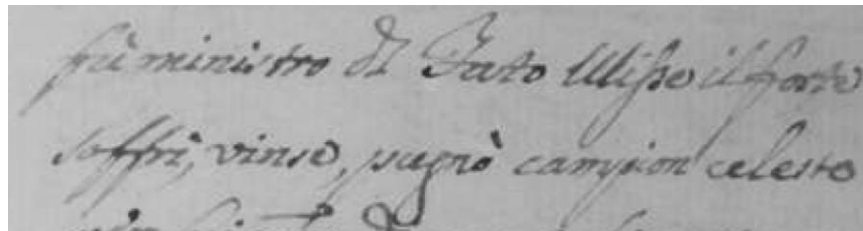 fù ministro di Fato Ulisse il forte
soffrì, vinse, pugnò campion celeste